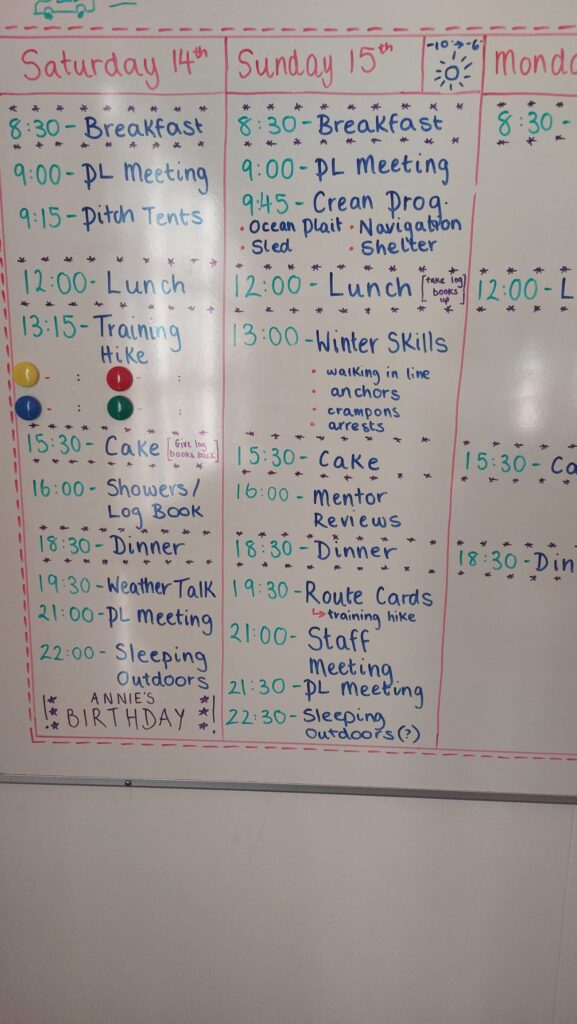 Saturday 14th
8:30 - Breakfast
9:00 - PL Meeting
9:15 - Pitch Tents
12:00 - Lunch
13:15 - Training
Hike
- : - :
- : - :
15:30 - Cake [Give log
books back]
16:00 - Showers/
Log Book
18:30 - Dinner
19:30 - Weather Talk
21:00 - PL meeting
22:00 - Sleeping
Outdoors
! ANNIE'S !
BIRTHDAY
Sunday 15th
-10 → -6
8:30 - Breakfast
9:00 - PL Meeting
9:45 - Crean Prog.
• Ocean Plait • Navigation
• Sled • Shelter
12:00 - Lunch [take log
books
up]
13:00 - Winter Skills
• walking in line
• anchors
• crampons
• arrests
15:30 - Cake
16:00 - Mentor
Reviews
18:30 - Dinner
19:30 - Route Cards
↳ training hike
21:00 - Staff
Meeting
21:30 - PL Meeting
22:30 - Sleeping
Outdoors (?)
Monda
8:30 -
12:00 - L
15:30 - Ca
18:30 - Din